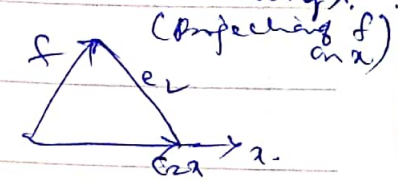 (Projecting f
on x)
f
e₂
C₂x
x.